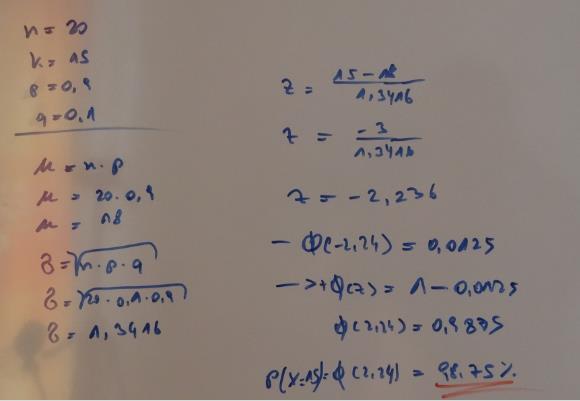 n = 20
k = 15
p = 0,9
q = 0,1
μ = n · p
μ = 20 · 0,9
μ = 18
σ = √n · p · q
σ = √20 · 0,1 · 0,9
σ = 1,3416
z = 15 - 18 / 1,3416
z = -3 / 1,3416
z = -2,236
- ϕ(-2,24) = 0,0125
-> + ϕ(z) = 1 - 0,0125
ϕ(2,24) = 0,9875
P(X=15) = ϕ(2,24) = 98.75%